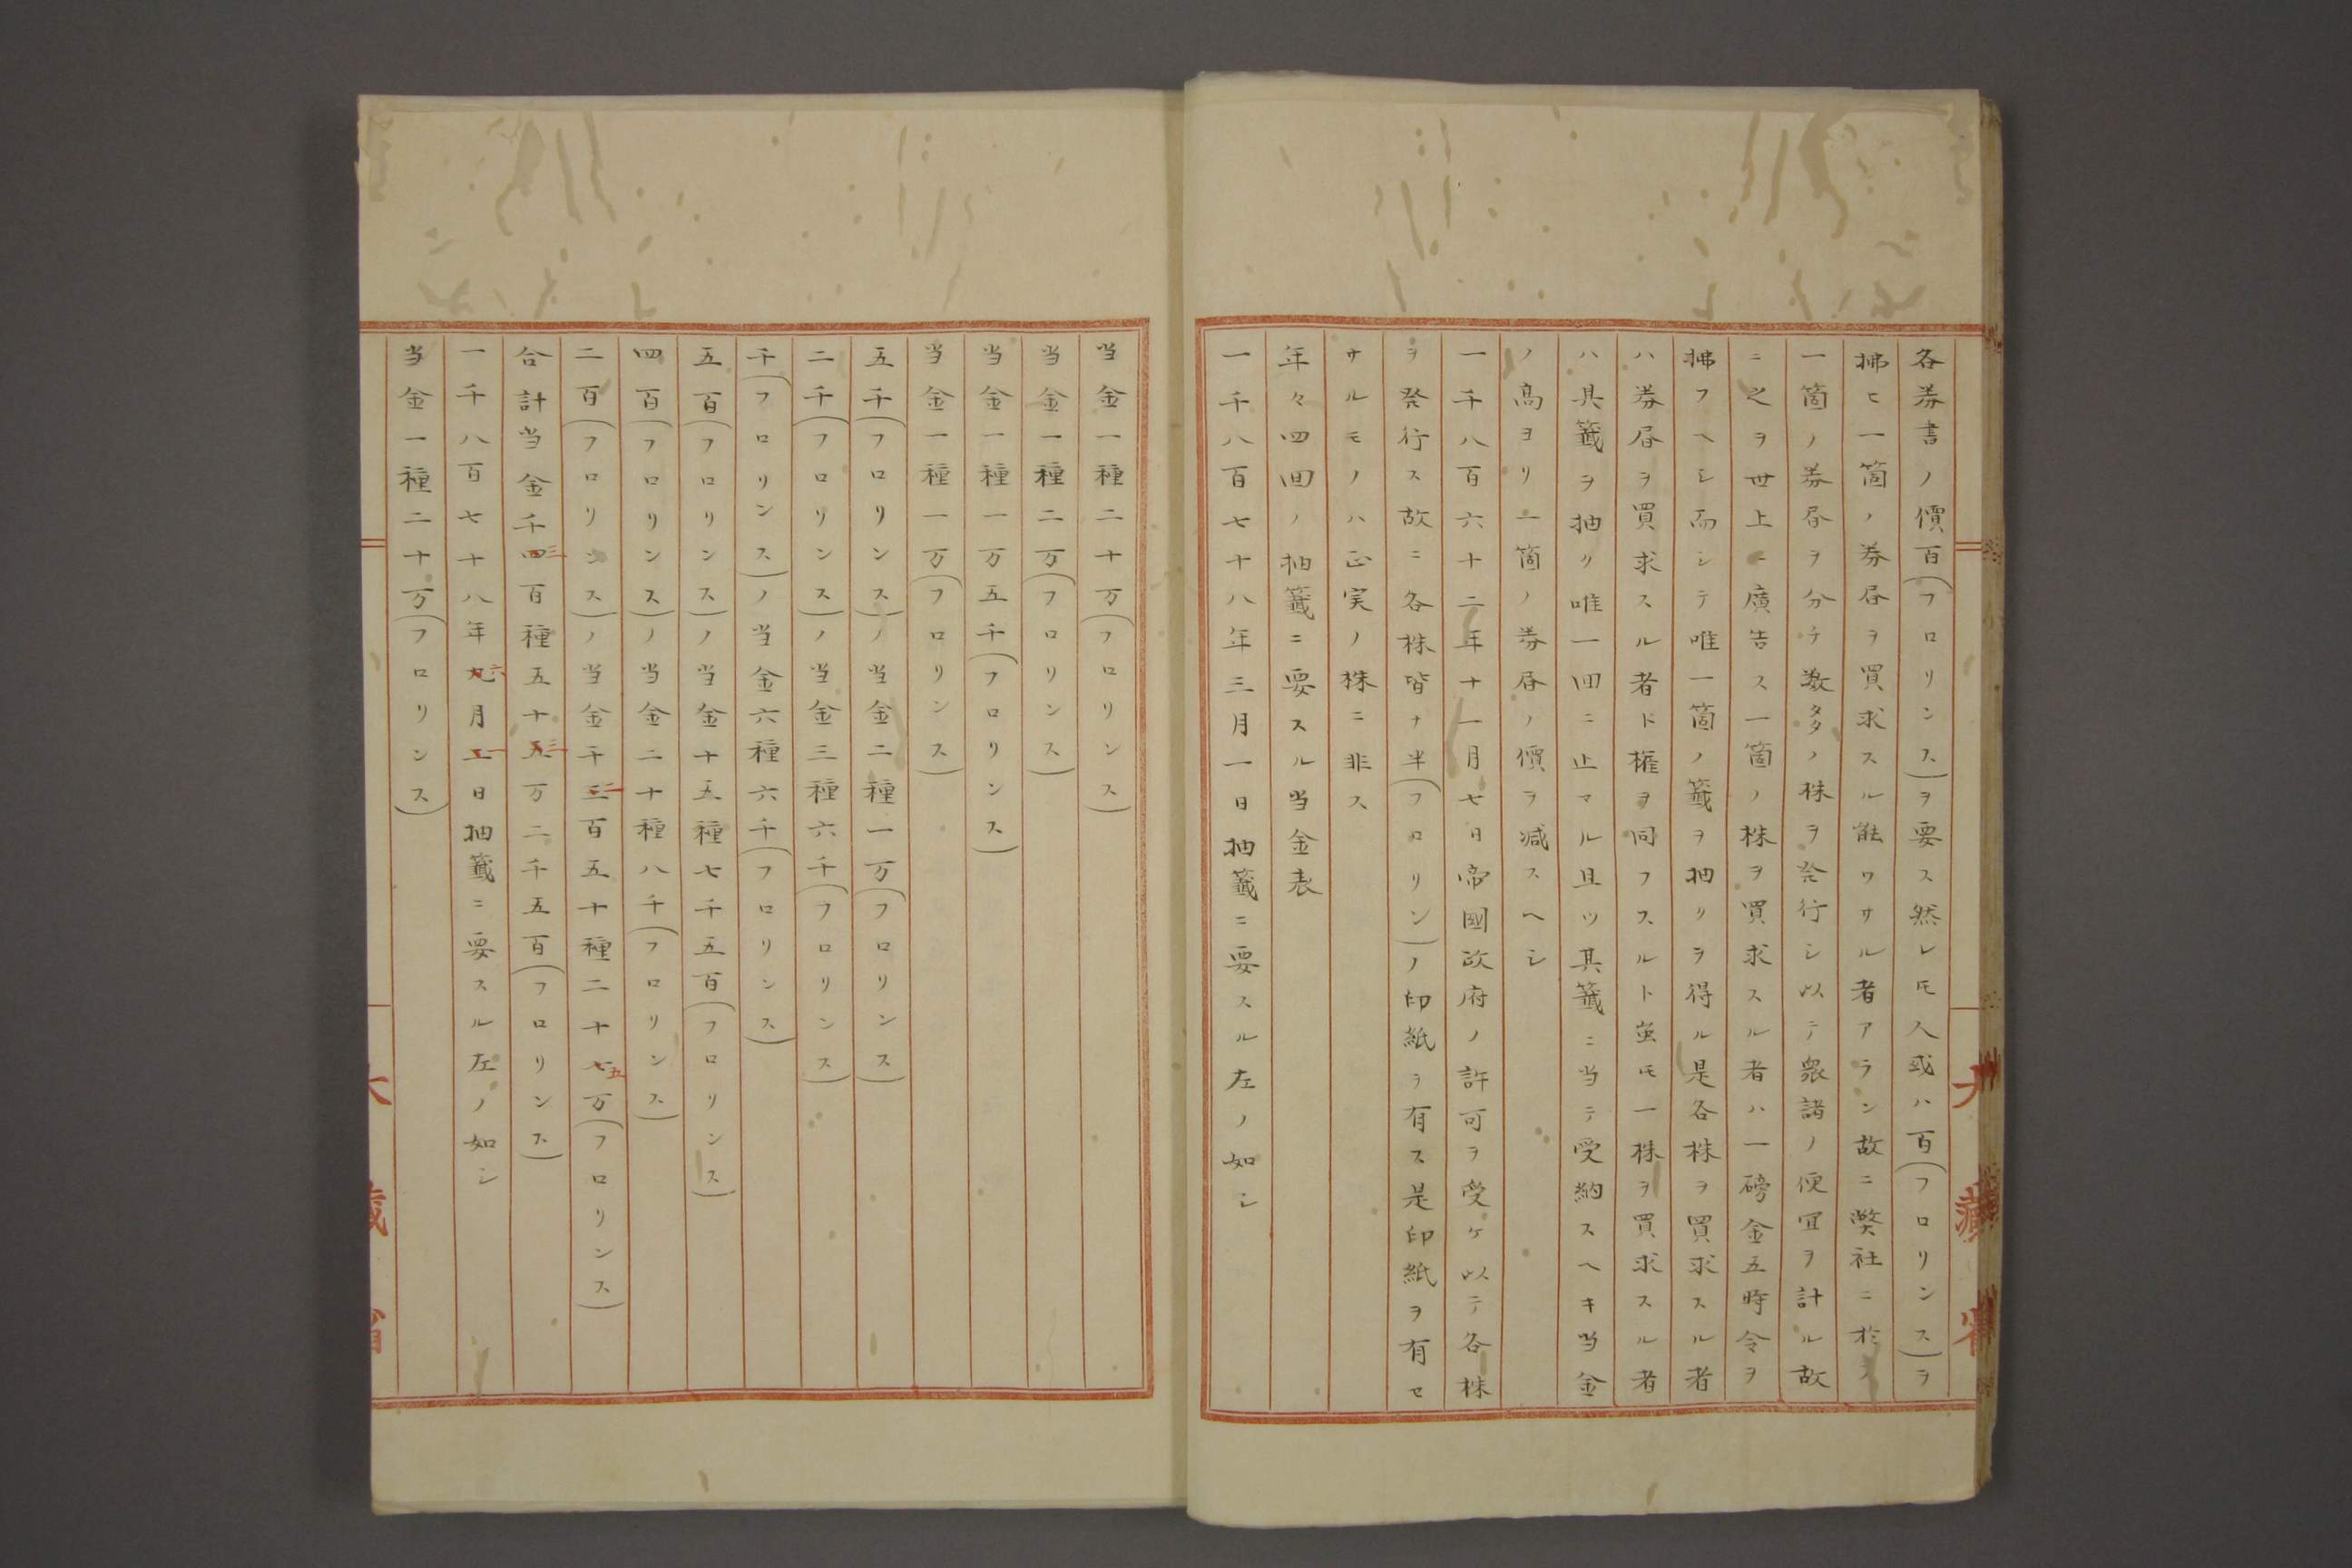 各券書ノ價百(フロリンス)ヲ要ス然レ𪜈人或ハ百(フロリンス)ヲ
拂ヒ一箇ノ券昏ヲ買求スル能ワサル者アラン故ニ弊社ニ於テ
一箇ノ券昏ヲ分チ数多ノ株ヲ発行シ以テ衆諸ノ便冝ヲ計ル故
ニ之ヲ世上ニ廣告ス一箇ノ株ヲ買求スル者ハ一磅金五時令ヲ
拂フヘシ而シテ唯一箇ノ籤ヲ抽リヲ得ル是各株ヲ買求スル者
ハ券昏ヲ買求スル者ト権ヲ同フスルト虽𪜈一株ヲ買求スル者
ハ其籤ヲ抽リ唯一回ニ止マル且ツ其籤ニ当テ受納スヘキ当金
ノ高ヨリ一箇ノ券昏ノ價ヲ減スヘシ
一千八百六十二年十一月七日帝國政府ノ許可ヲ受ケ以テ各株
ヲ発行ス故ニ各株皆ナ半(フロリン)ノ印紙ヲ有ス是印紙ヲ有セ
サルモノハ正実ノ株ニ非ス
年々四回ノ抽籤ニ要スル当金表
一千八百七十八年三月一日抽籤ニ要スル左ノ如シ
大藏省
当金一種二十万(フロリンス)
当金一種二万(フロリンス)
当金一種一万五千(フロリンス)
当金一種一万(フロリンス)
五千(フロリンス)ノ当金二種一万(フロリンス)
二千(フロリンス)ノ当金三種六千(フロリンス)
千(フロリンス)ノ当金六種六千(フロリンス)
五百(フロリンス)ノ当金十五種七千五百(フロリンス)
四百(フロリンス)ノ当金二十種八千(フロリンス)
二百(フロリンス)ノ当金千三二百五十種二十七五万(フロリンス)
合計当金千四三百種五十五三万二千五百(フロリンス)
一千八百七十八年九六月一日抽籤ニ要スル左ノ如シ
当金一種二十万(フロリンス)